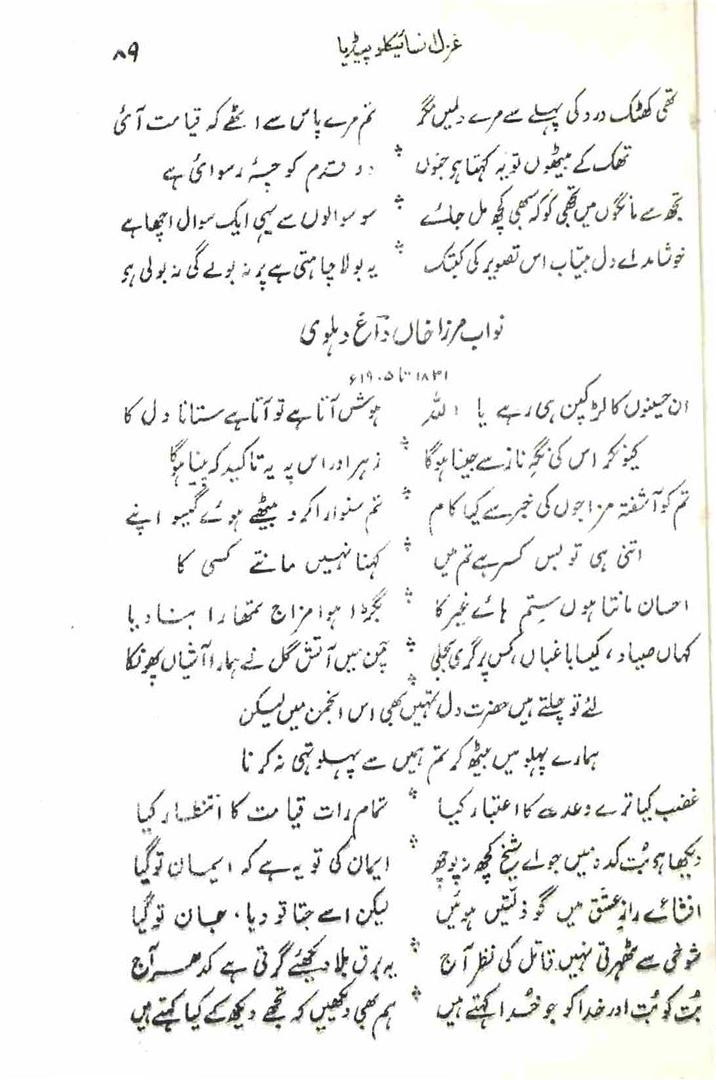 غزل انسائیکلوپیڈیا ۸۹
تھی کھٹک درد کی پہلے سے مرے دلمیں مگر تم مرے پاس سے اٹھے کہ قیامت آئی
تھک کے بیٹھوں تو یہ کہتا ہی جنوں دو قدم کوچۂ رسوائی ہے
تجھ سے مانگوں میں تجھی کو کہ سبھی کچھ مل جائے سو سوالوں سے یہی ایک سوال اچھا ہے
خوشامد اے دل بیتاب اس تصویر کی کبتک یہ بولا چاہتی ہے پر نہ بولے گی نہ بولی ہی
نواب مرزا خاں داغ دہلوی
۱۸۳۱ تا ۱۹۰۵ء
ان حسینوں کا لڑکپن ہی رہے یا اللہ ہوش آتا ہے تو آتا ہے ستانا دل کا
کیونکر اس کی نگہِ ناز سے جینا ہوگا زہر اور اس پہ یہ تاکید کہ پینا ہوگا
تم کو آشفتہ مزاجوں کی خبر سے کیا کام تم سنوارا کرو بیٹھے ہوئے گیسو اپنے
اتنی ہی تو بس کسر ہے تم میں کہنا نہیں مانتے کسی کا
احسان مانتا ہوں ستم ہائے غیر کا بگڑا ہوا مزاج تمھارا بنا دیا
کہاں صیاد، کیسا باغباں، کس پر گری بجلی چمن میں آتش گل نے ہمارا آشیاں پھونکا
لئے تو چلتے ہیں حضرت دل تمہیں بھی اس انجمن میں لیکن
ہمارے پہلو میں بیٹھ کر تم ہمیں سے پہلو تہی نہ کرنا
غضب کیا ترے وعدے کا اعتبار کیا تمام رات قیامت کا انتظار کیا
دیکھا ہی بُت کدہ میں جو اے شیخ کچھ نہ پوچھ ایمان کی تو یہ ہے کہ ایمان تو گیا
افشائے رازِ عشق میں گو ذلّتیں ہوئیں لیکن اسے جتا تو دیا، جان تو گیا
شوخی سے ٹھہرتی نہیں قاتل کی نظر آج یہ برق بلا دیکھئے گرتی ہے کدھر آج
بُت کو بُت اور خدا کو جو خُدا کہتے ہیں ہم بھی دیکھیں کہ تجھے دیکھ کے کیا کہتے ہیں